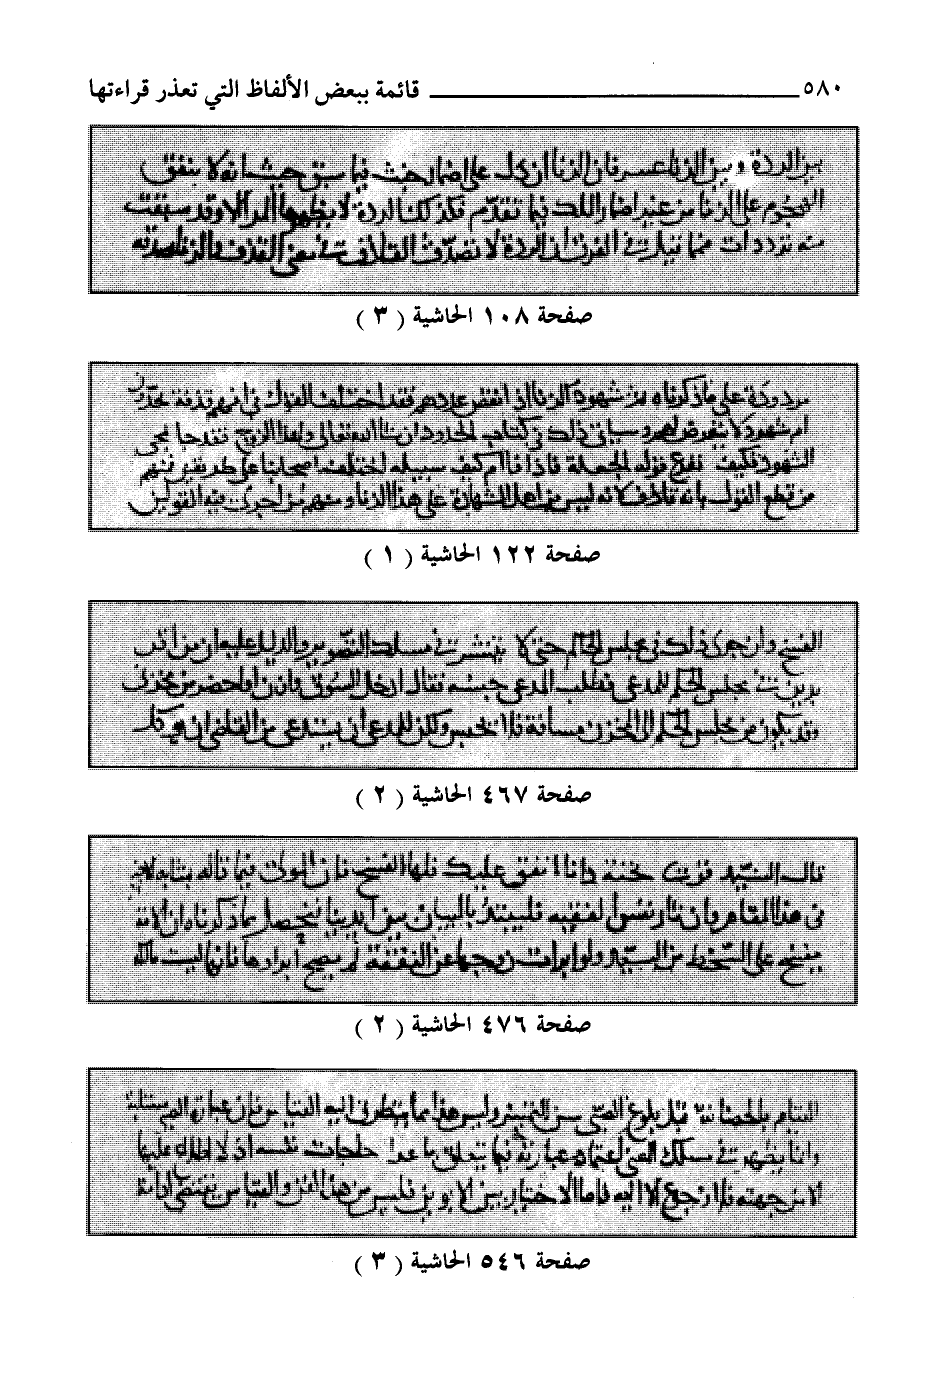 ٥٨٠ قائمة ببعض الألفاظ التي تعذر قراءتها
بين الردة وبين الزنا عسر فان الزنا ان دل على اضمار خبث فيما سبق حيث انه لا يتفق
الهجوم على الزنا من غير اضمار لذلك فيما تقدم فكذلك الردة لا يظهرها المرء الا وقد سبقت
منه ترددات فما قيل في الفرق ان الردة لا تصدق القاذف في معنى القذف والزنا يصدقه
صفحة ١٠٨ الحاشية ( ٣ )
مردودة على ما ذكرناه من شهود الزنا اذا نقص عددهم فقد اختلف القول في انهم قذفة
ام شهود لا يتعرض لهم وسياتي ذلك في كتاب الحدود ان شا الله تعالى ولهذا الزوج
الشهود فكيف قوله الجملة فاذا ثم كيف سبيله اختلف اصحابنا على طريقين فمنهم
من قطع القول بانه قاذف لانه ليس من اهل الشهادة على هذا الزنا ومنهم من اجرى فيه القولين
صفحة ١٢٢ الحاشية ( ١ )
الفسخ وان جرى ذلك في مجلس الحاكم حتى لا ينتشر في مسلك التصوير والدليل عليه ان من اقر
بدين في مجلس الحكم للمدعي فطلب المدعي حبسه فقال ادخل السوق وادن او احضر من مخزني
وقد يكون من مجلس الحكم الى المخزن مسافة فلا نحبس ولكن للمدعي ان يستدعي من القاضي ان
صفحة ٤٦٧ الحاشية ( ٢ )
قال السيد تحته وانا انفق عليك فلها الفسخ فان المولى فيما قاله بمثابة
في هذا المقام بان لفقيه فليبتدر بالبيان من فيحصل بما ذكرناه ان الامة
يفسخ على السخط من السيد ولو ابرات زوجها عن النفقة لم يصح ابراؤها فانها ليست مالكة
صفحة ٤٧٦ الحاشية ( ٢ )
القيام بالحضانة قبل بلوغ الصبي سن التمييز وليس هذا مما يتطرق اليه القياس فان
وانما يظهر في مسلك المعنى اعتماد عبارته فيما يتعلق حاجات نفسه اذ لا اطلاع عليها
الا من جهته فلا رجوع الا اليه فاما الاختيار بين الابوين فليس من هذا الفن والقياس يقتضي ادامة
صفحة ٥٤٦ الحاشية ( ٣ )